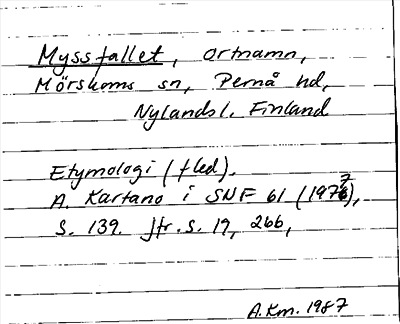 Myssfallet, ortnamn,
Mörskoms sn, Pernå hd,
Nylands l. Finland
Etymologi (fled).
A. Kartano i SNF 61 (1977),
s. 139. Jfr. s. 19, 266,
A.Km. 1987